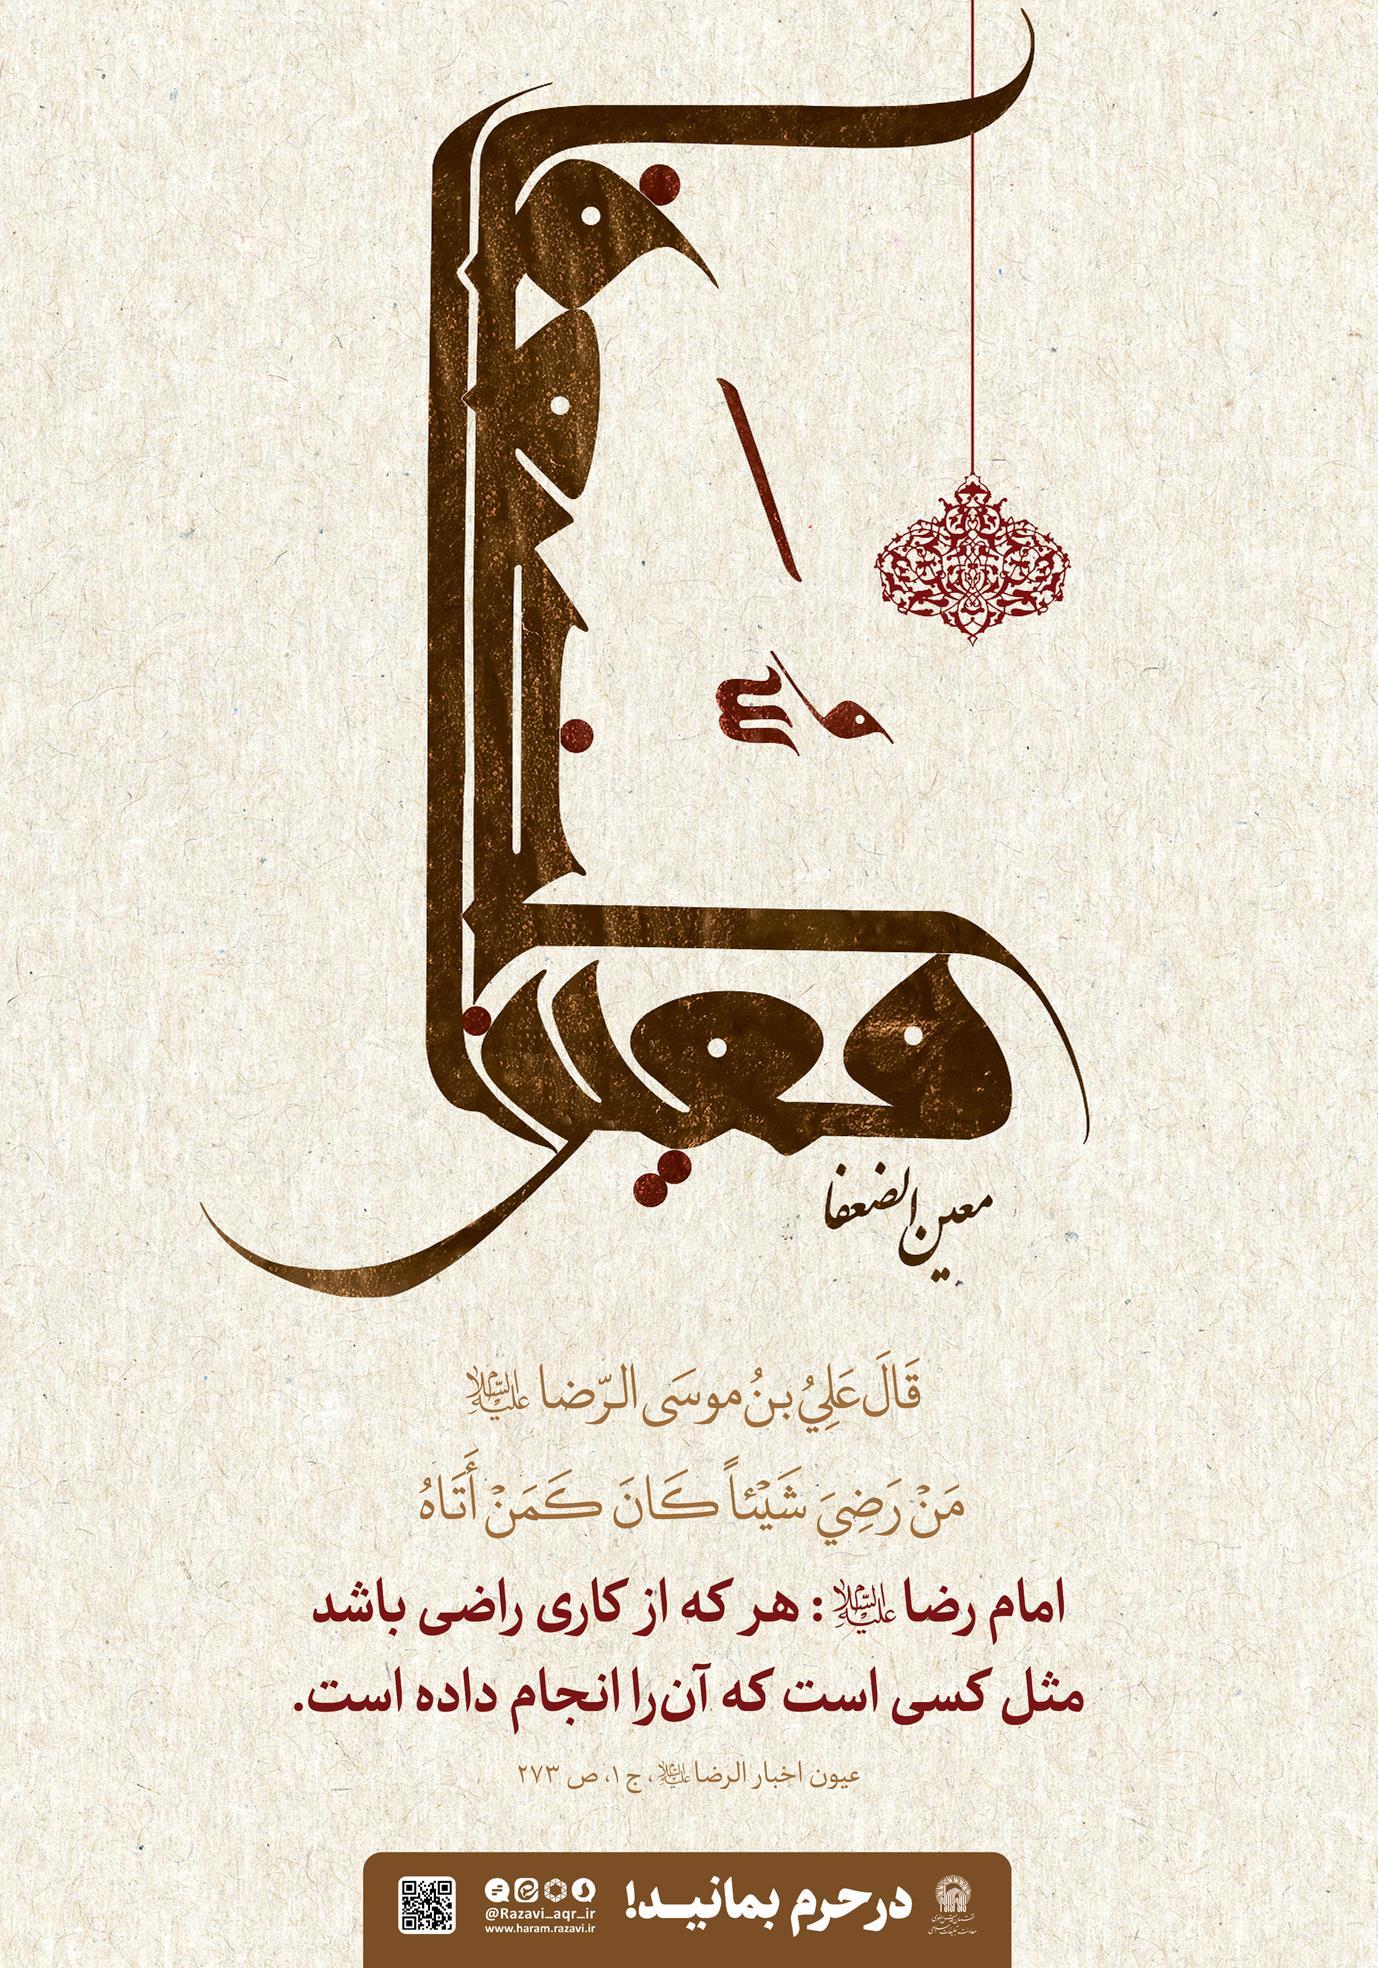 معین الضعفا
معین الضعفا
قَالَ عَلِيُ بنُ موسَى الرّضا عليه السلام
مَنْ رَضِيَ شَيْئاً كَانَ كَمَنْ أَتَاهُ
امام رضا علیه السلام : هر که از کاری راضی باشد
مثل کسی است که آن‌را انجام داده است.
عیون اخبار الرضا علیه السلام، ج ۱، ص ۲۷۳
در حرم بمانید!
@Razavi_aqr_ir
www.haram.razavi.ir